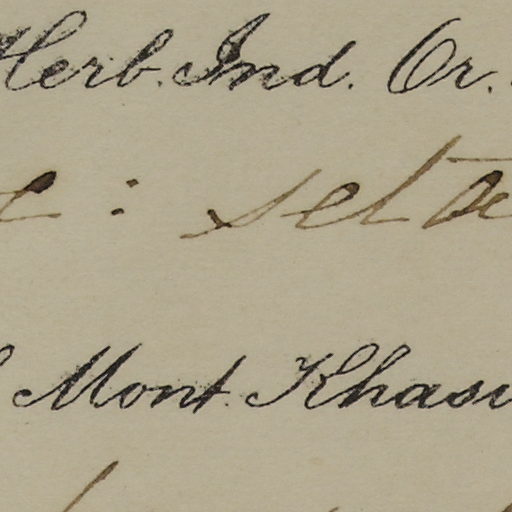 Herb. Ind. Or.
: seta
Mont. Khasi